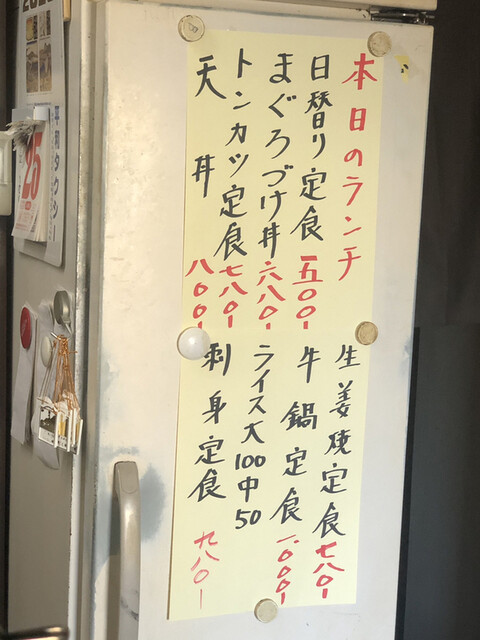 本日のランチ
日替り定食 五〇〇-
まぐろづけ丼 六八〇-
トンカツ定食 七八〇-
天丼 八〇〇-
生姜焼定食 七八〇-
牛鍋定食 一、〇〇〇-
ライス大100中50
刺身定食 九八〇-
平和タクシー
25